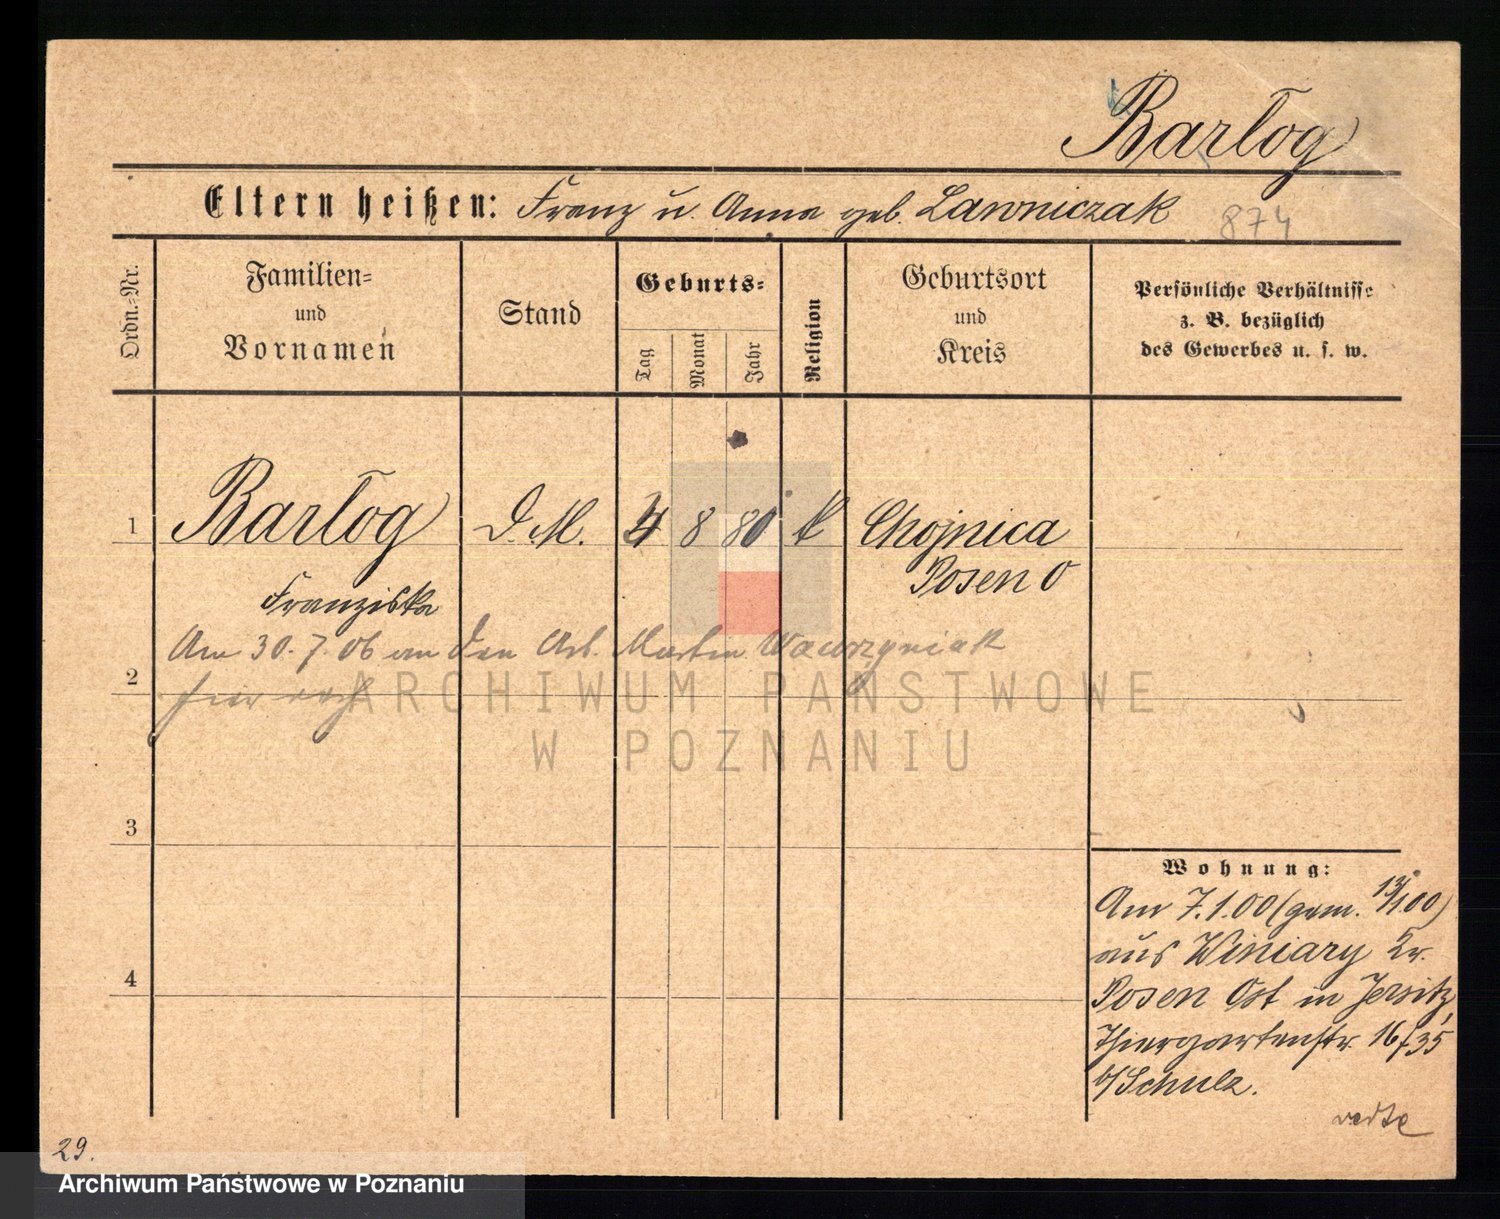 Barłog
Eltern heißen: Franz u. Anna geb. Lawniczak 874
Ordn.=Nr.
Familien=
und
Vornamen
Stand
Geburts=
Tag
Monat
Jahr
Religion
Geburtsort
und
Kreis
Persönliche Verhältnisse
z. B. bezüglich
des Gewerbes u. s. w.
1 Barłog D. M. 4 8 80 k Chojnica
Posen O
Franziska
Am 30.7.06 an den Arb. Martin Wawrzyniak
2 hier
ARCHIWUM PAŃSTWOWE
W POZNANIU
3
4
Wohnung:
Am 7.1.00 (gem. 13/1 00)
aus Winiary Kr.
Posen Ost in Jersitz,
Thiergartenstr. 16/35
b/Schulz.
29.
Archiwum Państwowe w Poznaniu